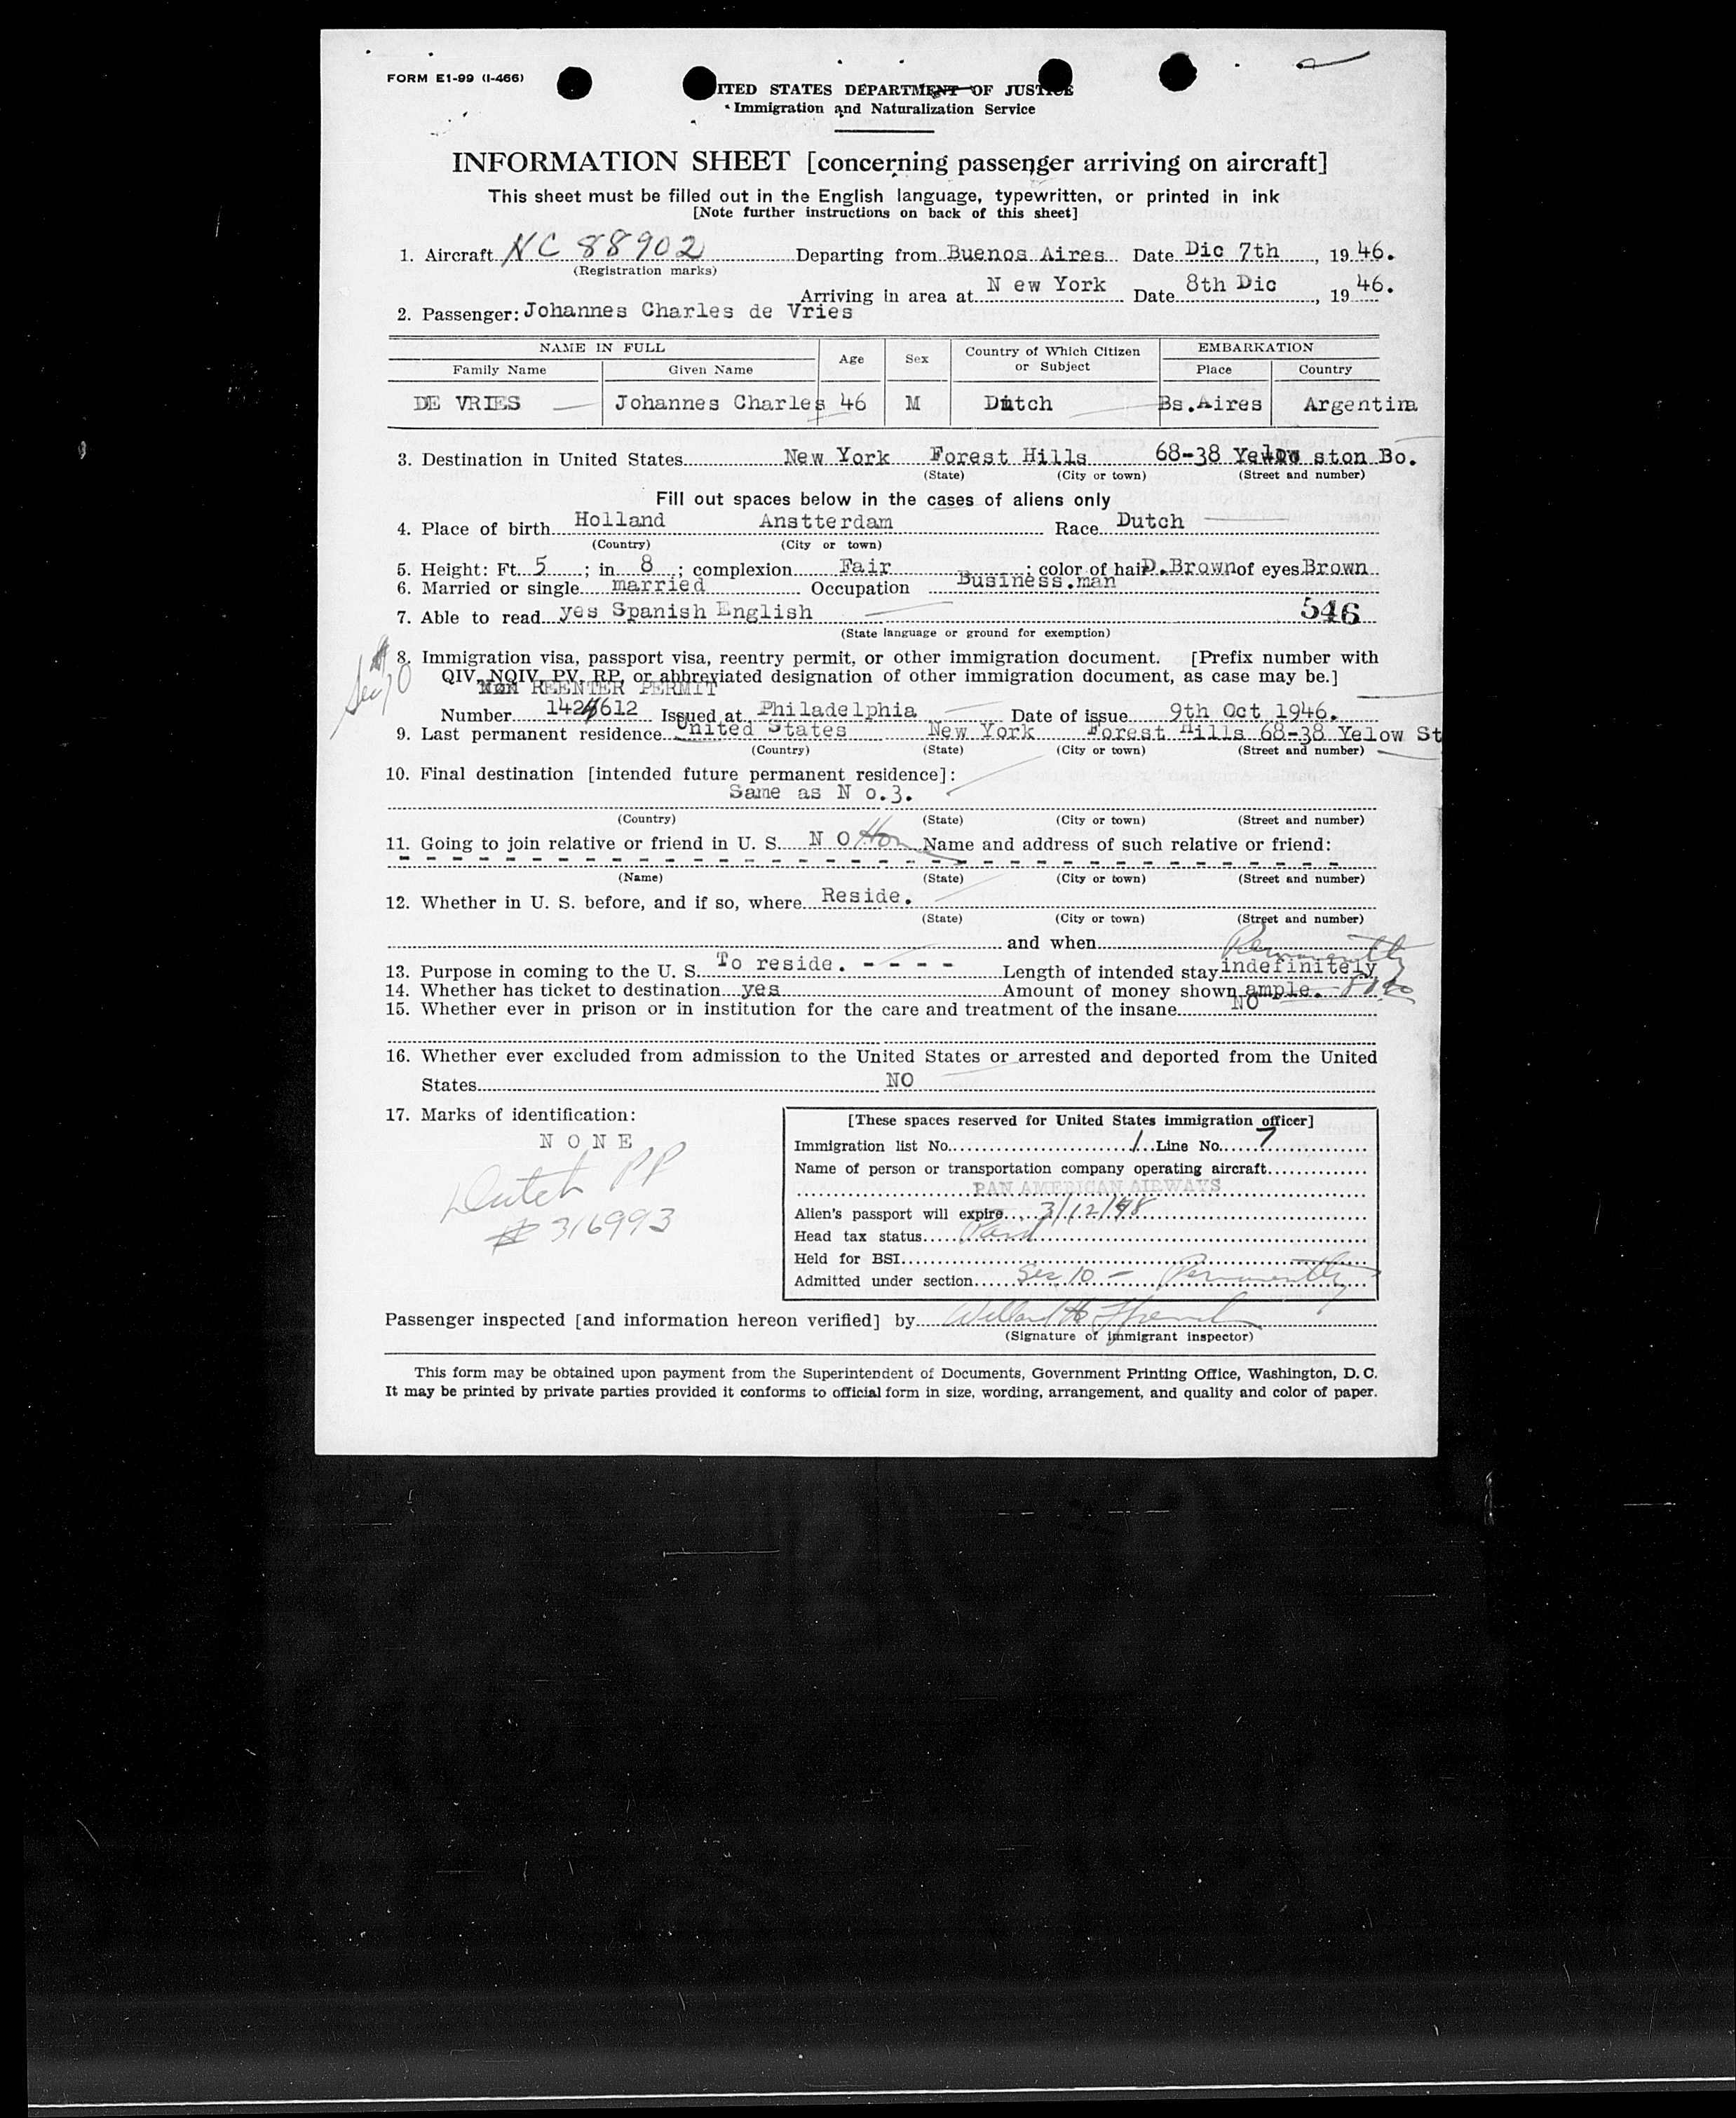 FORM E1-99 (I-466)
ITED STATES DEPARTMENT OF JUSTICE
Immigration and Naturalization Service
INFORMATION SHEET [concerning passenger arriving on aircraft]
This sheet must be filled out in the English language, typewritten, or printed in ink
[Note further instructions on back of this sheet]
1. Aircraft NC 88902 Departing from Buenos Aires Date Dic 7th, 1946.
(Registration marks)
Arriving in area at N ew York Date 8th Dic, 1946.
2. Passenger: Johannes Charles de Vries
NAME IN FULL Age Sex Country of Which Citizen or Subject EMBARKATION
Family Name Given Name Place Country
DE VRIES Johannes Charles 46 M Dutch Bs.Aires Argentina
3. Destination in United States New York Forest Hills 68-38 Yellow ston Bo.
(State) (City or town) (Street and number)
Fill out spaces below in the cases of aliens only
4. Place of birth Holland Anstterdam Race Dutch
(Country) (City or town)
5. Height: Ft. 5; in 8; complexion Fair; color of hair D.Brown of eyes Brown
6. Married or single married Occupation Business.man
7. Able to read yes Spanish English 546
(State language or ground for exemption)
Sec 10
8. Immigration visa, passport visa, reentry permit, or other immigration document. [Prefix number with
QIV, NQIV, PV, RP, or abbreviated designation of other immigration document, as case may be.]
REENTER PERMIT
Number 1424612 Issued at Philadelphia Date of issue 9th Oct 1946.
9. Last permanent residence United States New York Forest Hills 68-38 Yelow St
(Country) (State) (City or town) (Street and number)
10. Final destination [intended future permanent residece]:
Same as N o.3.
(Country) (State) (City or town) (Street and number)
11. Going to join relative or friend in U. S. N O Home Name and address of such relative or friend:
(Name) (State) (City or town) (Street and number)
12. Whether in U. S. before, and if so, where Reside.
(State) (City or town) (Street and number)
and when
Permanently
13. Purpose in coming to the U. S. To reside. - - - - Length of intended stay indefinitely
14. Whether has ticket to destination yes Amount of money shown ample.
15. Whether ever in prison or in institution for the care and treatment of the insane NO
16. Whether ever excluded from admission to the United States or arrested and deported from the United
States NO
17. Marks of identification:
N O N E
Dutch PP
# 316993
[These spaces reserved for United States immigration officer]
Immigration list No. 1 Line No. 7
Name of person or transportation company operating aircraft
PAN AMERICAN AIRWAYS
Alien's passport will expire 3/12/48
Head tax status Paid
Held for BSI
Admitted under section Sec 10 - Permanently
Passenger inspected [and information hereon verified] by Willard H.
(Signature of immigrant inspector)
This form may be obtained upon payment from the Superintendent of Documents, Government Printing Office, Washington, D. C.
It may be printed by private parties provided it conforms to official form in size, wording, arrangement, and quality and color of paper.